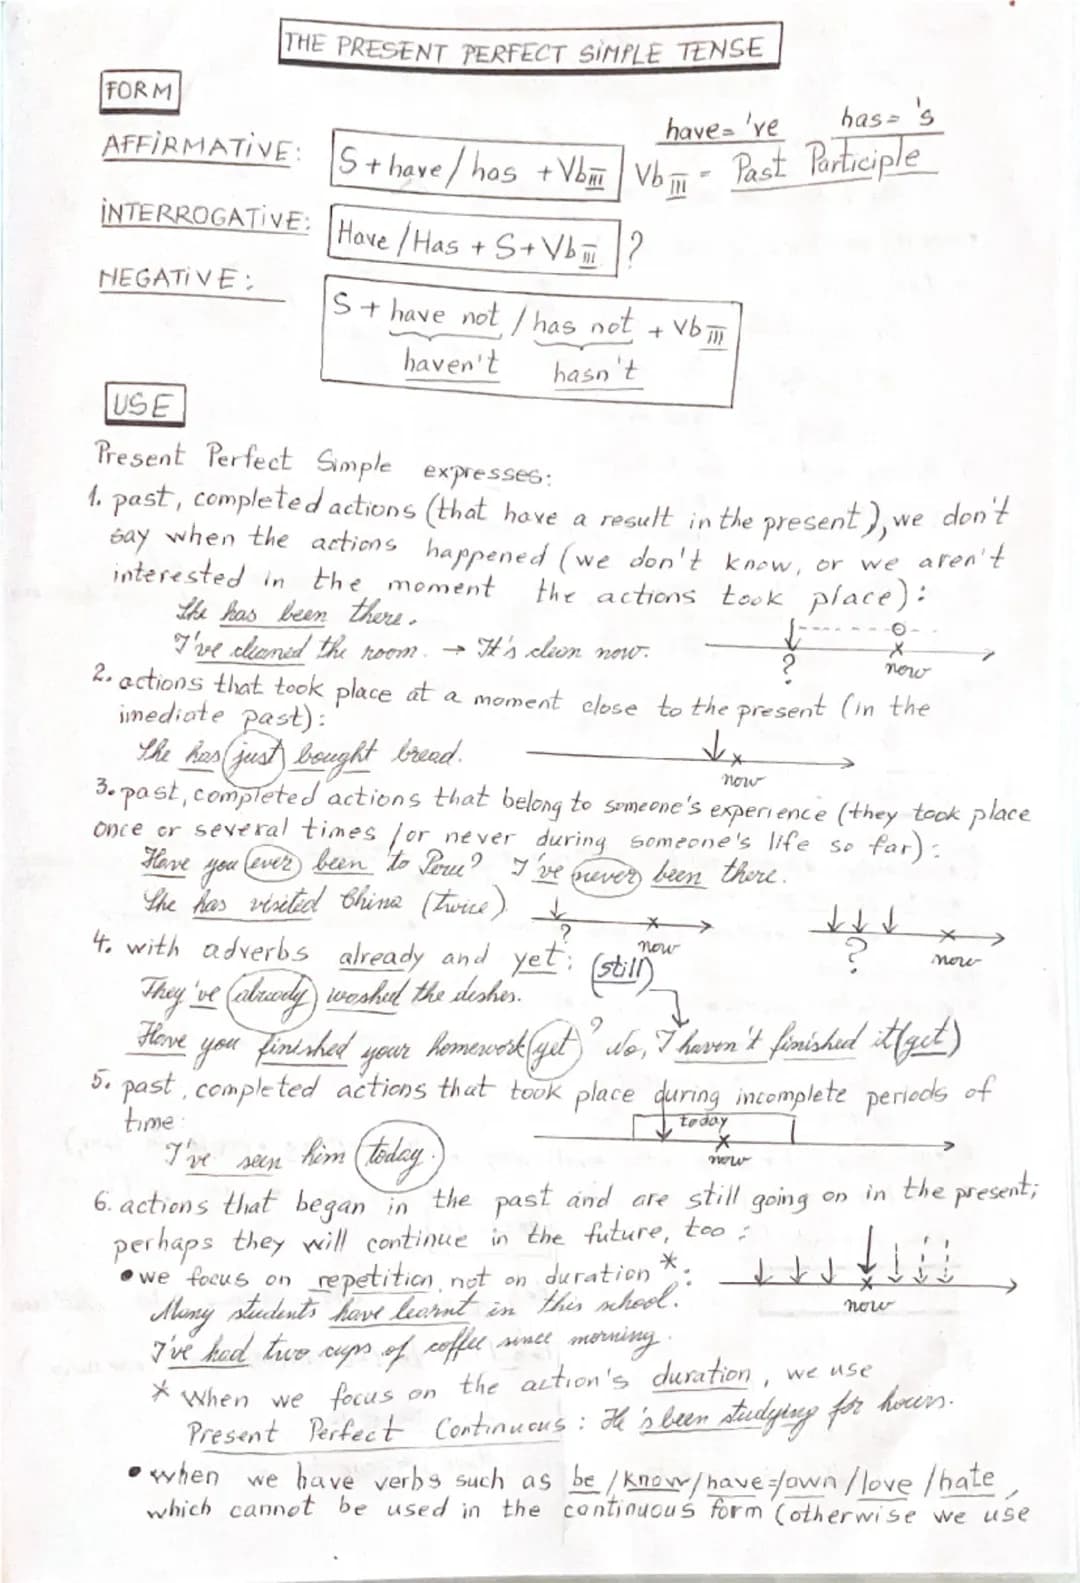 THE PRESENT PERFECT SIMPLE TENSE
FORM
have = 've has = 's
AFFIRMATIVE: S + have / has + Vb III Vb III = Past Participle
INTERROGATIVE: Have / Has + S + Vb III ?
NEGATIVE: S + have not / has not + Vb III
haven't hasn't
USE
Present Perfect Simple expresses:
1. past, completed actions (that have a result in the present), we don't
say when the actions happened (we don't know, or we aren't
interested in the moment the actions took place):
She has been there.
I've cleaned the room. → It's clean now.
? now
2. actions that took place at a moment close to the present (in the
imediate past):
She has just bought bread.
now
3. past, completed actions that belong to someone's experience (they took place
once or several times / or never during someone's life so far):
Have you ever been to Peru? I've never been there.
She has visited China (twice).
? now ? now
4. with adverbs already and yet: (still)
They've already washed the dishes.
Have you finished your homework yet? No, I haven't finished it (yet)
5. past, completed actions that took place during incomplete periods of
time:
today
I've seen him today.
now
6. actions that began in the past and are still going on in the present;
perhaps they will continue in the future, too:
• we focus on repetition, not on duration *:
now
Many students have learnt in this school.
I've had two cups of coffee since morning.
* When we focus on the action's duration, we use
Present Perfect Continuous: He's been studying for hours.
• when we have verbs such as be / know / have = own / love / hate,
which cannot be used in the continuous form (otherwise we use